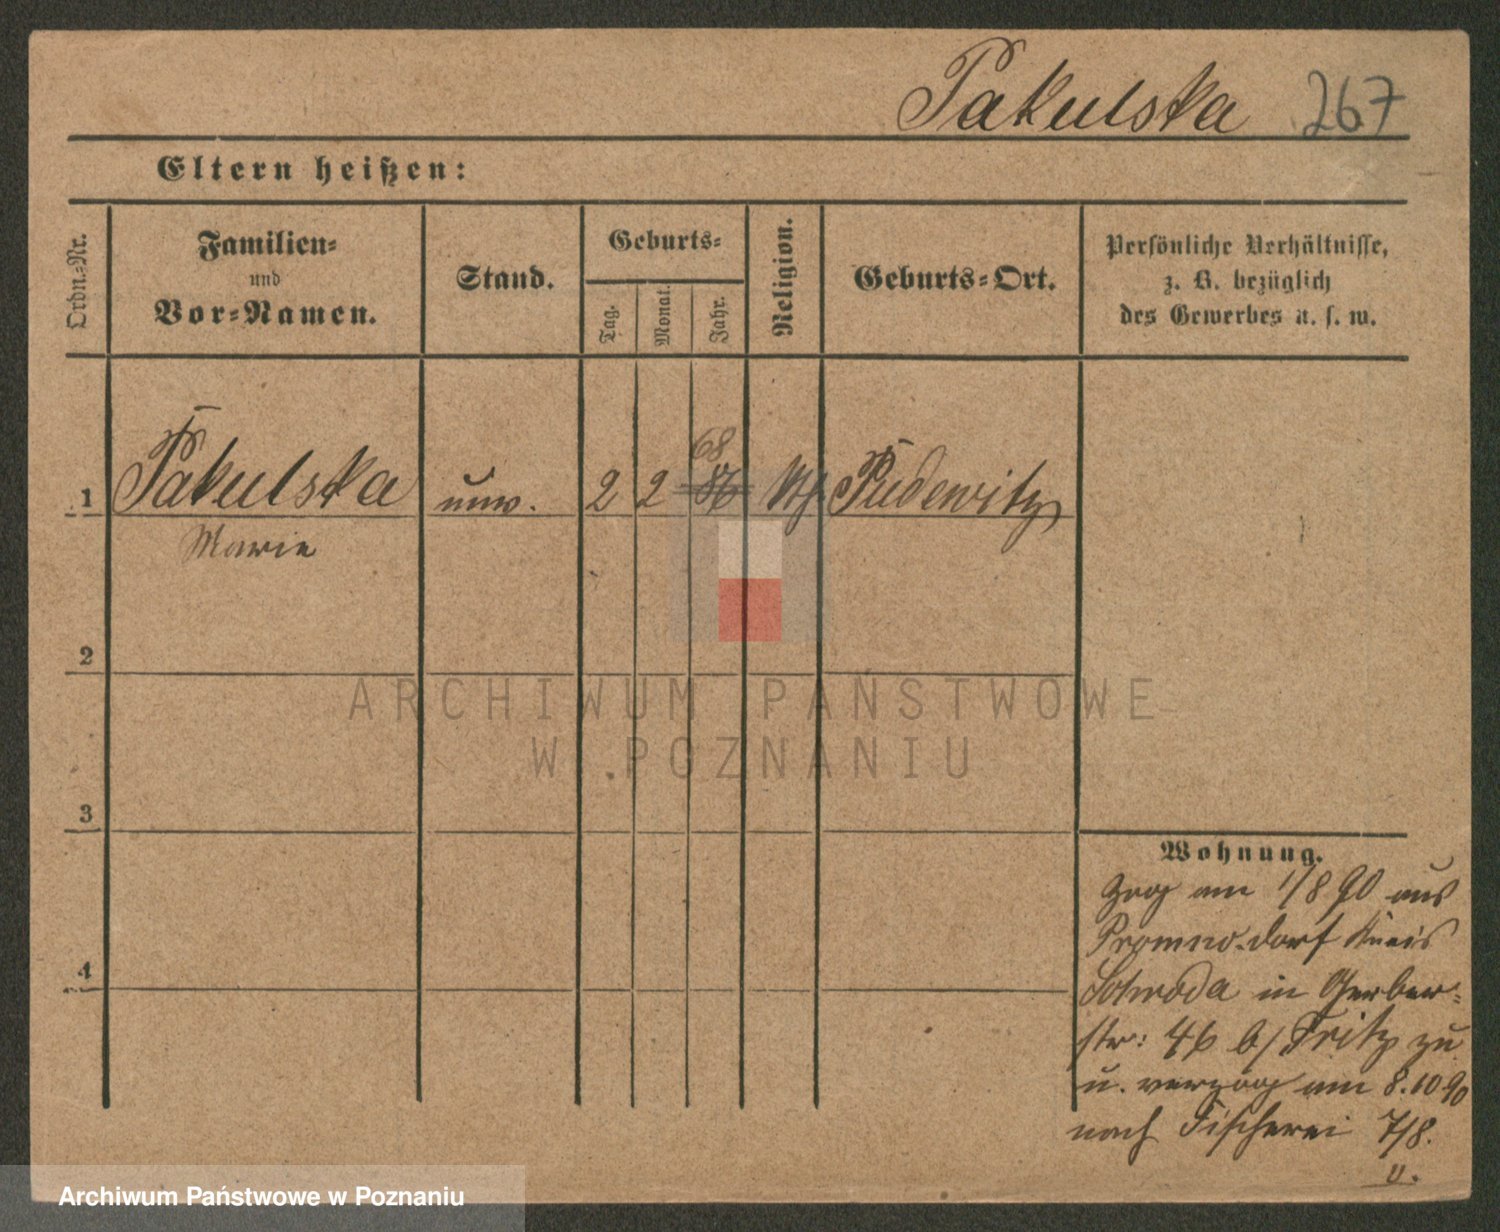 Pakulska 267
Eltern heißen:
Ordn.-Nr.
Familien-
und
Vor-Namen.
Stand.
Geburts-
Tag.
Monat.
Jahr.
Religion.
Geburts-Ort.
Persönliche Verhältnisse,
z. B. bezüglich
des Gewerbes u. s. w.
68
1 Pakulska unv. 2 2 86 kth Pudewitz
Marie
2
3
4
Wohnung.
zog am 1/8 90 aus
Promno-dorf Kreis
Schroda in Gerber-
str: 46 b/ Fritz zu
u. verzog am 8.10 90
nach Fischerei 7/8.
v.
ARCHIWUM PAŃSTWOWE
W POZNANIU
Archiwum Państwowe w Poznaniu